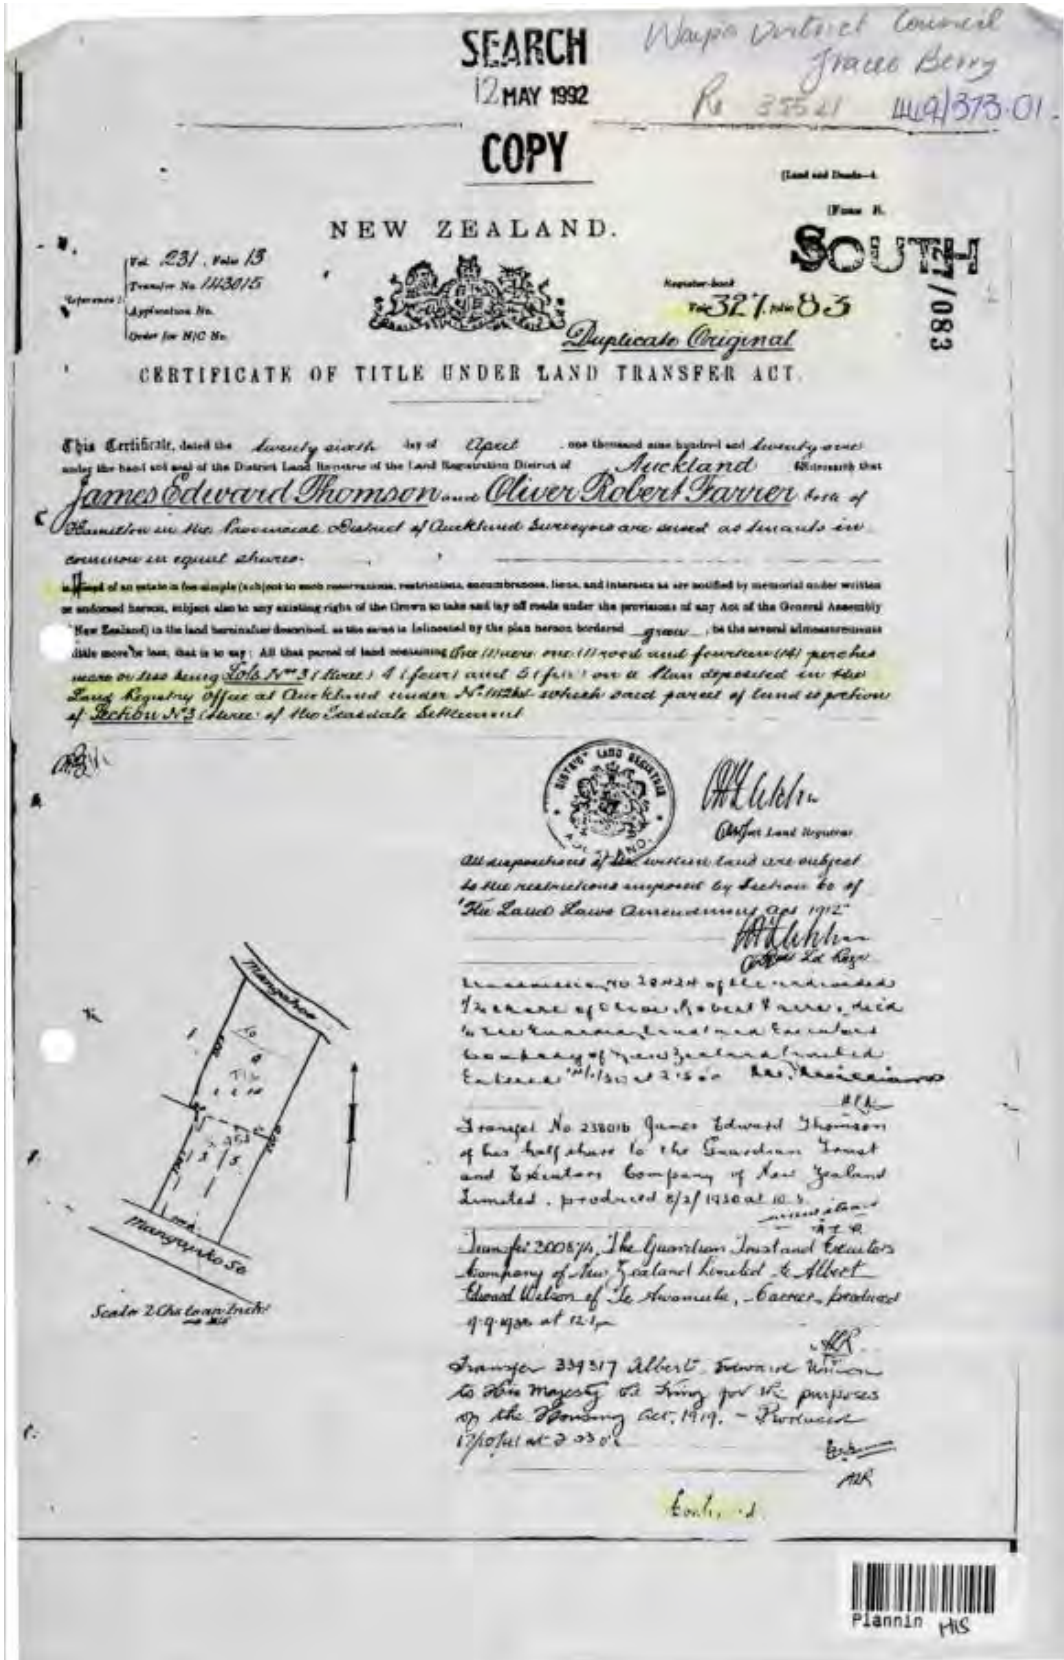 SEARCH
12 MAY 1992
COPY
Waipa District Council
Berry
Re 35521 469/373.01.
(Land and Deeds—4.
(Form B.
NEW ZEALAND.
SOUTH
27/083
Vol. 231, Folio 13
Transfer No. 143015
Reference:
Application No.
Order for N/C No.
Register-book
Vol. 327, folio 83
Duplicate Original
CERTIFICATE OF TITLE UNDER LAND TRANSFER ACT.
This Certificate, dated the twenty sixth day of April one thousand nine hundred and twenty one
under the hand and seal of the District Land Registrar of the Land Registration District of Auckland Witnesseth that
James Edward Thomson and Oliver Robert Farrer both of
Hamilton in the Provincial District of Auckland Surveyors are seised as tenants in
common in equal shares.
of an estate in fee-simple (subject to such reservations, restrictions, encumbrances, liens, and interests as are notified by memorial under written
or endorsed hereon, subject also to any existing right of the Crown to take and lay off roads under the provisions of any Act of the General Assembly
New Zealand) in the land hereinafter described, as the same is delineated by the plan hereon bordered green, be the several admeasurements
little more or less, that is to say: All that parcel of land containing One (1) acre one (1) rood and fourteen (14) perches
more or less being Lots Nos 3 (three) 4 (four) and 5 (five) on a Plan deposited in the
Land Registry Office at Auckland under No. which said parcel of land is portion
of Section No 3 (three) of the Teasdale Settlement
DISTRICT LAND REGISTRAR
AUCKLAND.
Land Registrar
All dispositions of the within land are subject
to the restrictions imposed by Section 60 of
"The Land Laws Amendment Act 1912"
Transmission No of the undivided
1/2 share of Oliver Robert Farrer, died
to The Guardian Trust and Executors
Company of New Zealand Limited
Entered
A.L.R.
Transfer No 238016 James Edward Thomson
of his half share to the Guardian Trust
and Executors Company of New Zealand
Limited. produced 8/2/1930 at 10.
A L R
Transfer The Guardian Trust and Executors
Company of New Zealand Limited to Albert
Edward Wilson of Te Awamutu, Carrier, produced
at 12.1
ALR
Transfer 339317 Albert Edward Wilson
to His Majesty the King for the purposes
of the Housing Act, 1919. — Produced
17/10/41 at
ALR
Mangahoe
Scale 2 Chs to an Inch
Plannin HIS